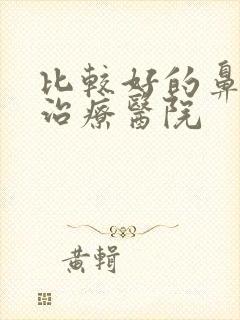 比較好的鼻
治療醫院
黃輯